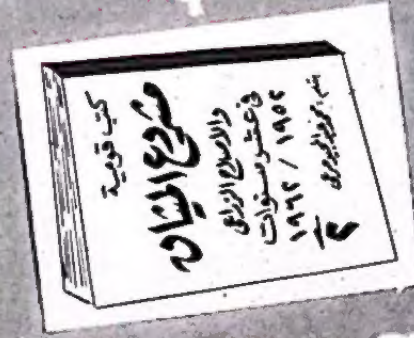 كتب قومية
مشروع الميثاق
والإصلاح الزراعى
فى عشر سنوات
١٩٥٢ / ١٩٦٢
بقلم: